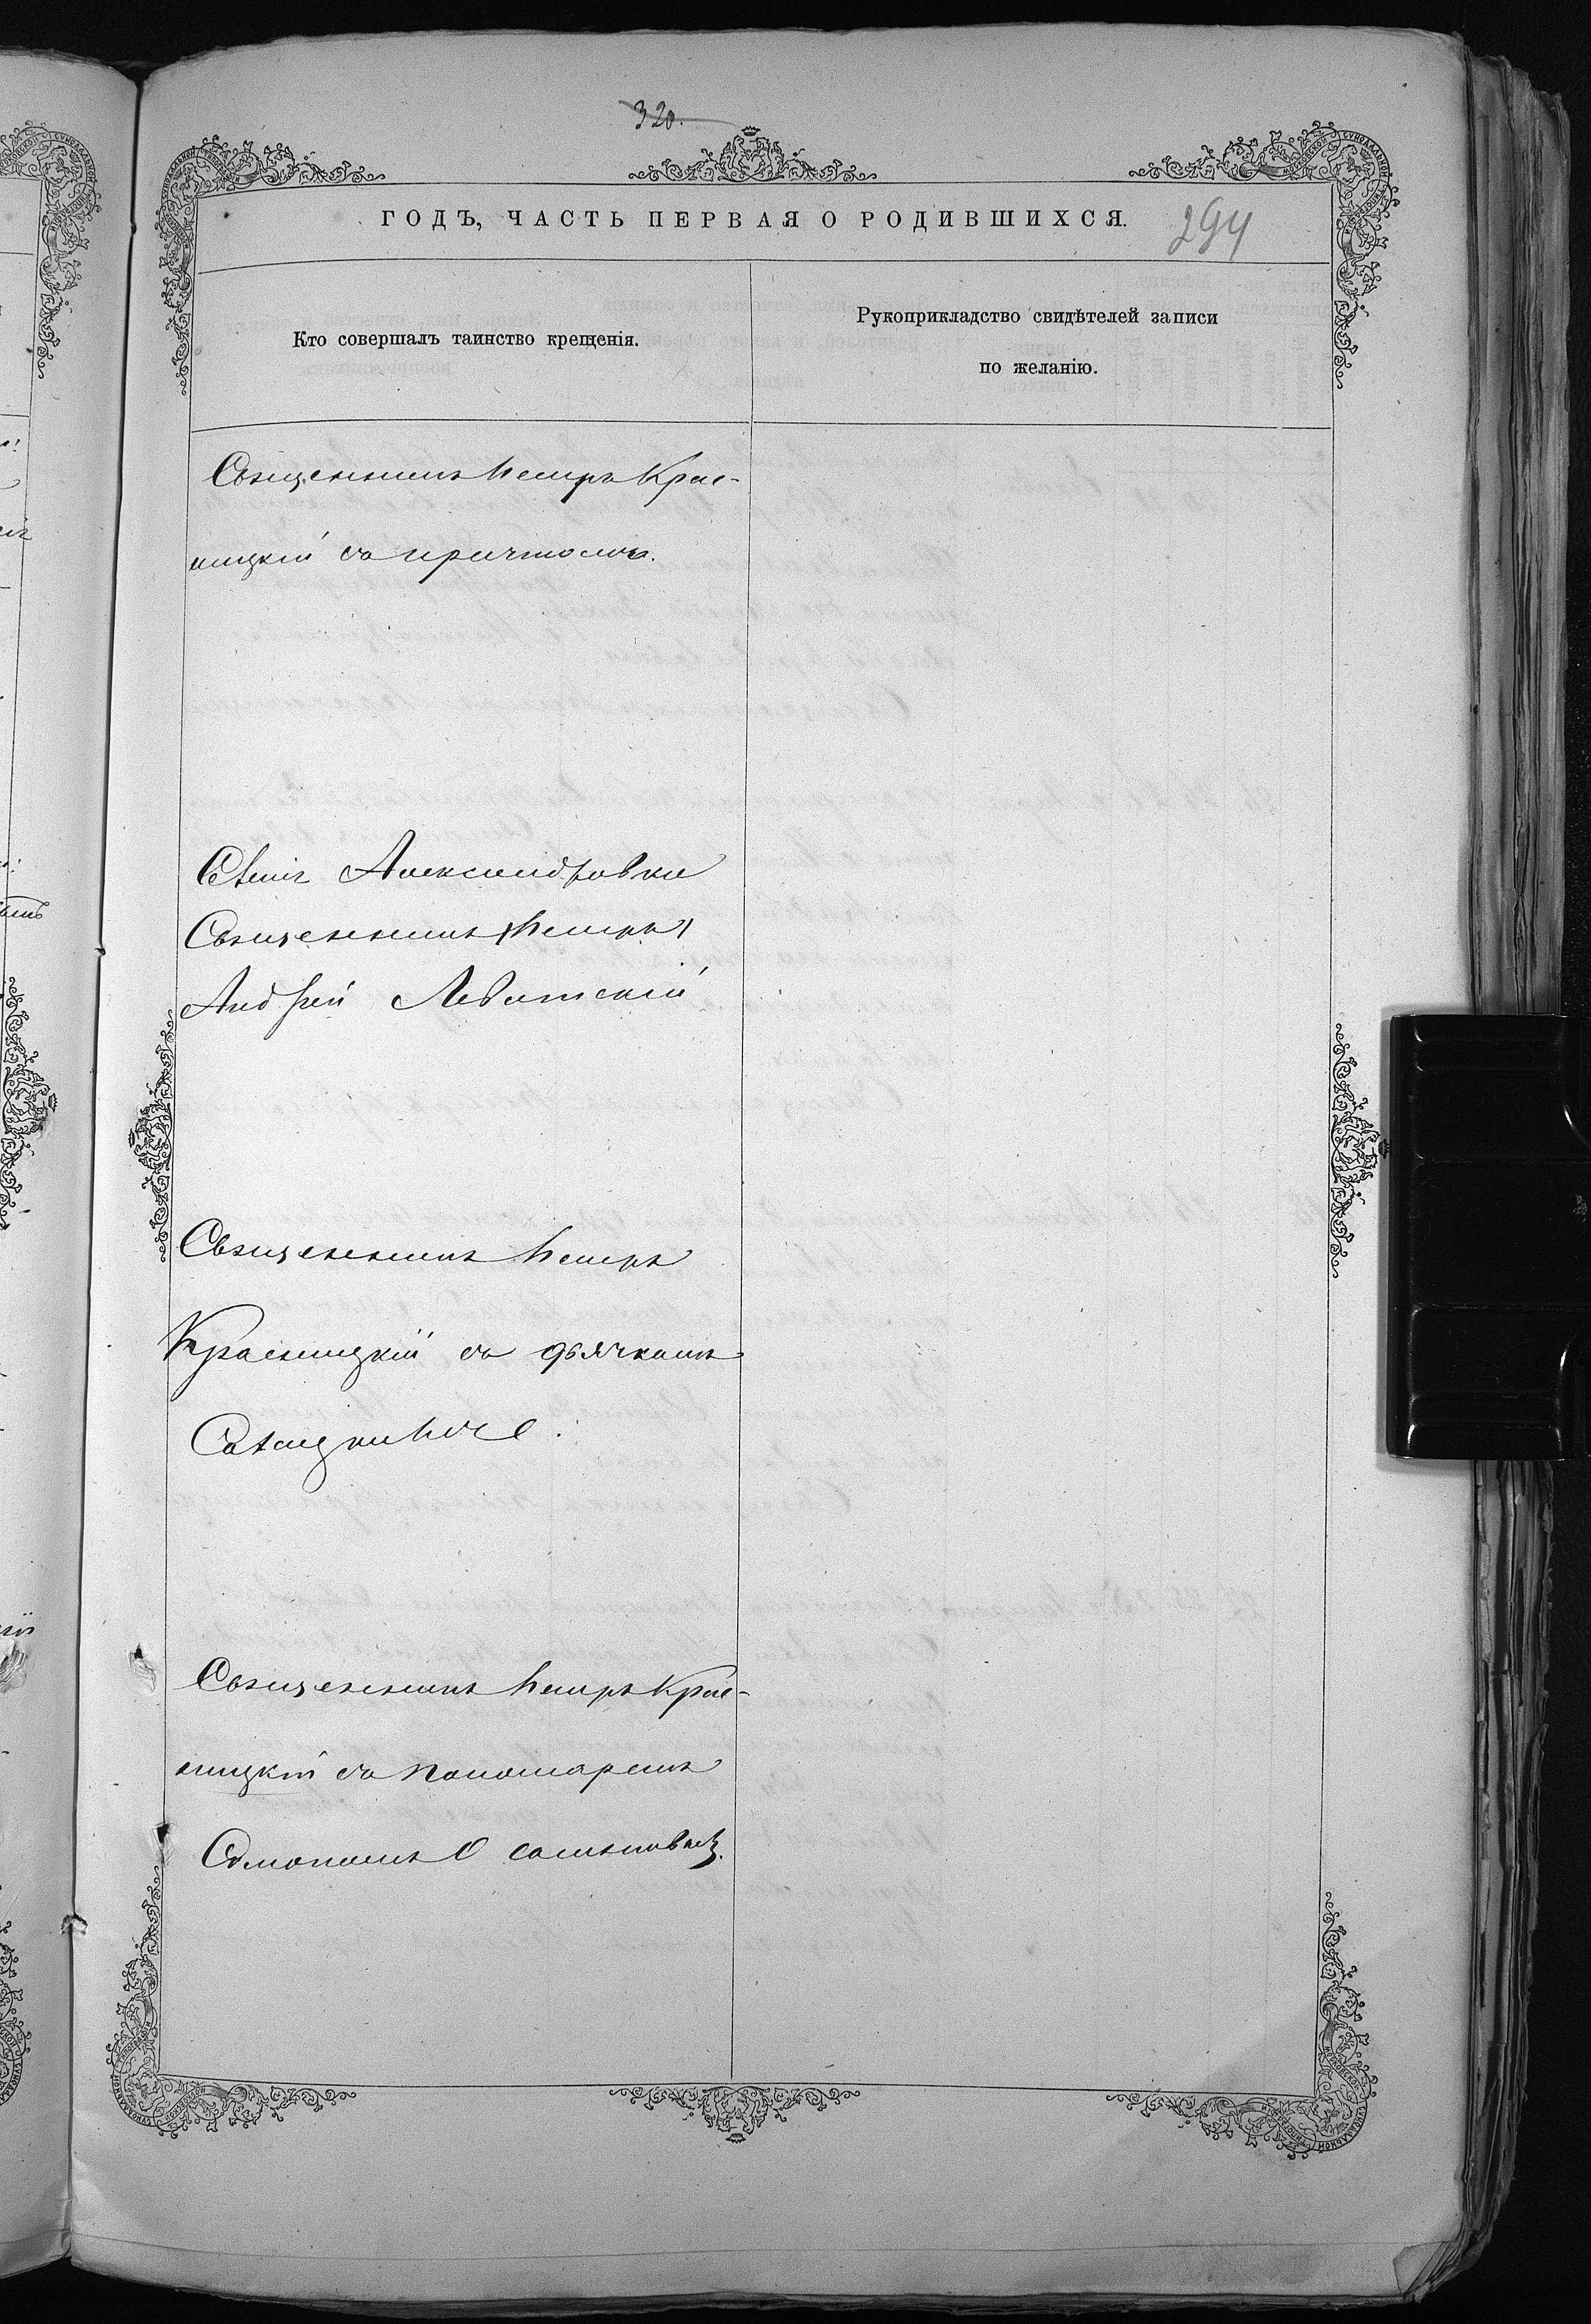 320.
ГОДЪ, ЧАСТЬ ПЕРВАЯ О РОДИВШИХСЯ.
294
Кто совершалъ таинство крещенія.
Рукоприкладство свидѣтелей записи
по желанію.
Священникъ Петръ Крас-
ницкій съ причтомъ.
Александровки
Священникъ (Петръ)
Андрей Левитскій
Священникъ Петръ
Красницкій съ дьячкомъ
Священникъ Петръ Крас-
ницкій съ пономаремъ